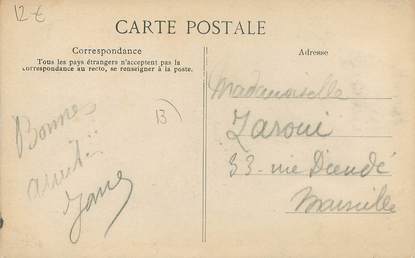 12€
CARTE POSTALE
Correspondance
Tous les pays étrangers n'acceptent pas la
correspondance au recto, se renseigner à la poste.
Adresse
13)
Bonnes
Mademoiselle
33 rue Dieudé
Marseille